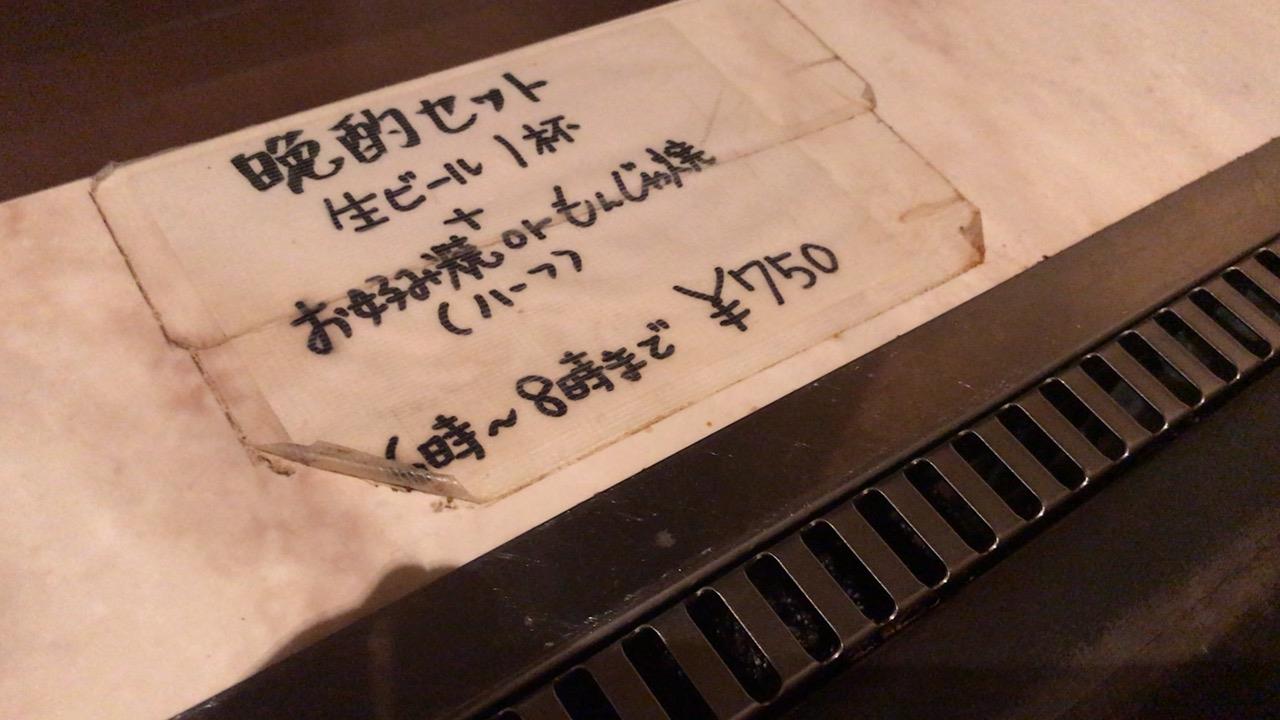 晩酌セット
生ビール1杯
+
お好み焼 or もんじゃ焼
(ハーフ)
¥750
時~8時まで